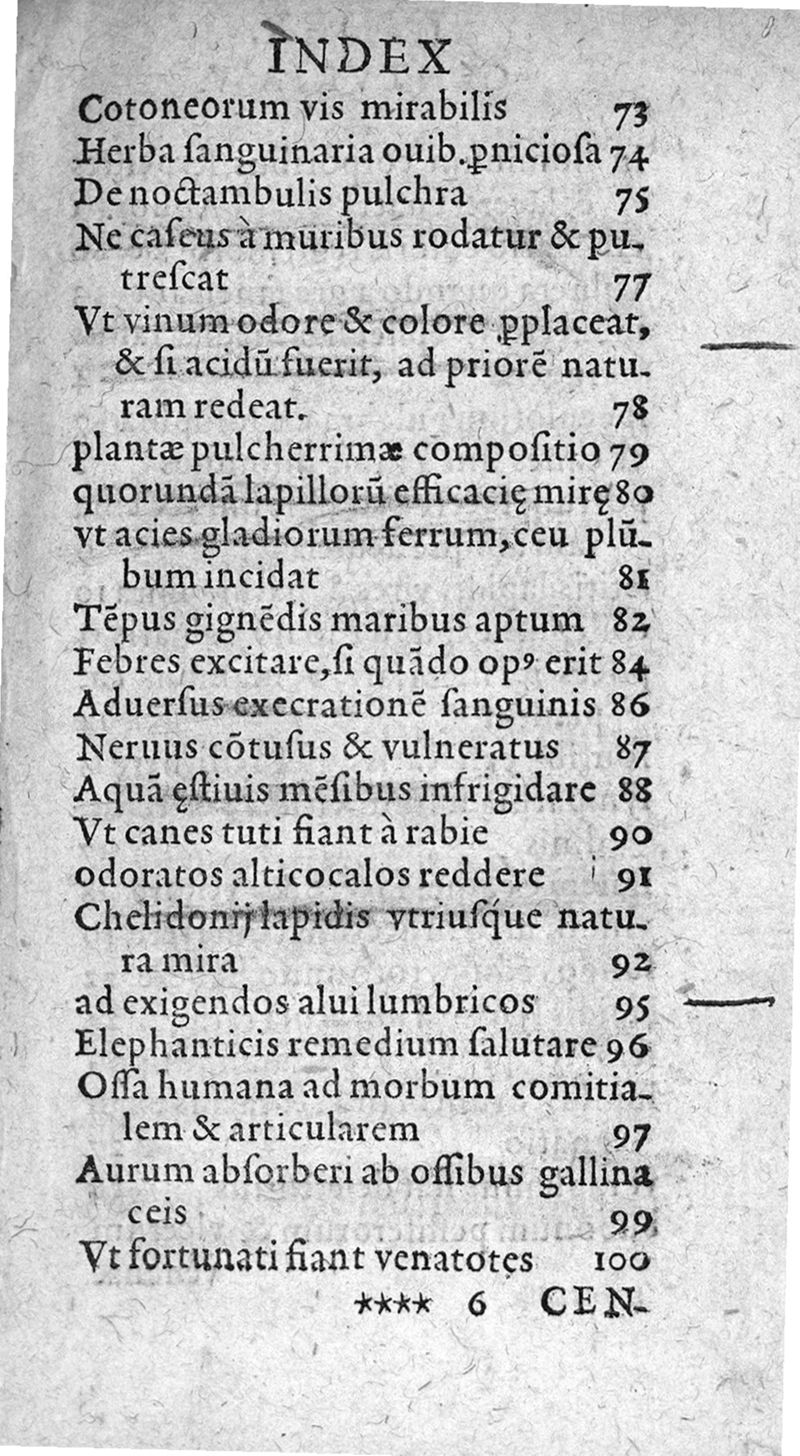 INDEX
Cotoneorum vis mirabilis 73
Herba ſanguinaria ouib. ꝑnicioſa 74
De noctambulis pulchra 75
Ne caſeus à muribus rodatur & pu-
treſcat 77
Vt vinum odore & colore ꝑplaceat,
& ſi acidū fuerit, ad priorē natu-
ram redeat. 78
plantæ pulcherrimæ compoſitio 79
quorundā lapillorū efficacię mirę 80
vt acies gladiorum ferrum, ceu plū-
bum incidat 81
Tēpus gignēdis maribus aptum 82
Febres excitare, ſi quādo opꝰ erit 84
Aduerſus execrationē ſanguinis 86
Neruus cōtuſus & vulneratus 87
Aquā ęſtiuis mēſibus infrigidare 88
Vt canes tuti fiant à rabie 90
odoratos alticocalos reddere 91
Chelidonij lapidis vtriuſq́ue natu-
ra mira 92
ad exigendos alui lumbricos 95
Elephanticis remedium ſalutare 96
Oſſa humana ad morbum comitia-
lem & articularem 97
Aurum abſorberi ab oſſibus gallina
ceis 99
Vt fortunati fiant venatotes 100
**** 6 CEN-